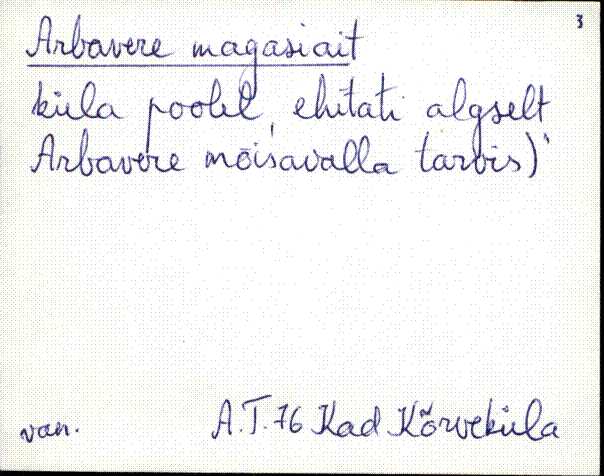 3
Arbavere magasiait
küla poolel, ehitati algselt
Arbavere mõisavalla tarvis)
van. A.T.76 Kad Kõrveküla